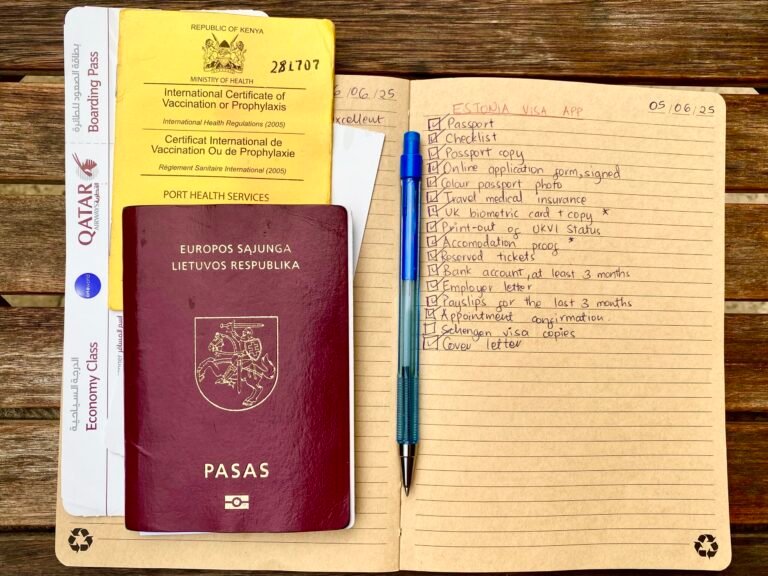 بطاقة الصعود للطائرة
Boarding Pass
QATAR
AIRWAYS القطرية
oneworld
الدرجة السياحية
Economy Class
اسم المسافر
REPUBLIC OF KENYA
281707
MINISTRY OF HEALTH
International Certificate of
Vaccination or Prophylaxis
International Health Regulations (2005)
Certificat International de
Vaccination Ou de Prophylaxie
Règlement Sanitaire International (2005)
PORT HEALTH SERVICES
EUROPOS SĄJUNGA
LIETUVOS RESPUBLIKA
PASAS
/06/25
excellent
ESTONIA VISA APP
05/06/25
Passport
Checklist
Passport copy
Online application form, signed
Colour passport photo
Travel medical insurance
UK biometric card + copy *
Print-out of UKVI Status
Accomodation proof *
Reserved tickets
Bank account, at least 3 months
Employer letter
Payslips for the last 3 months
Appointment confirmation.
Schengen visa copies
Cover letter